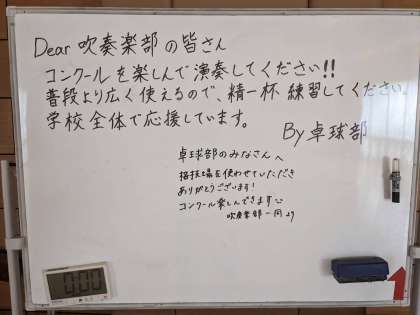 Dear 吹奏楽部の皆さん
コンクールを楽しんで演奏してください!!
普段より広く使えるので、精一杯練習してください。
学校全体で応援しています。
By 卓球部
卓球部のみなさんへ
格技場を使わせていただき
ありがとうございます!
コンクール楽しんできます
吹奏楽部一同より
0:00
1